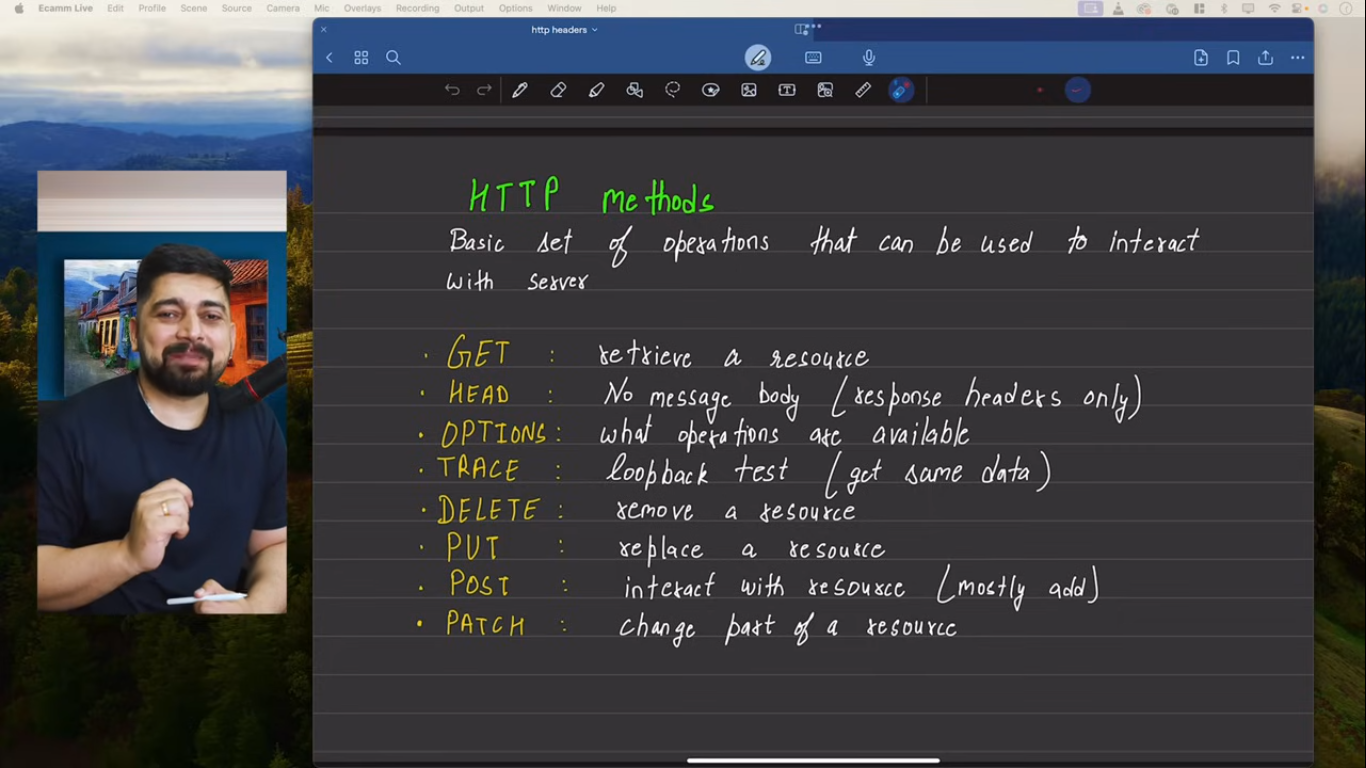 Ecamm Live Edit Profile Scene Source Camera Mic Overlays Recording Output Options Window Help
http headers
HTTP methods
Basic set of operations that can be used to interact
with server
· GET : retrieve a resource
· HEAD : No message body (response headers only)
· OPTIONS : what operations are available
· TRACE : loopback test (get same data)
· DELETE : remove a resource
· PUT : replace a resource
· POST : interact with resource (mostly add)
· PATCH : change part of a resource